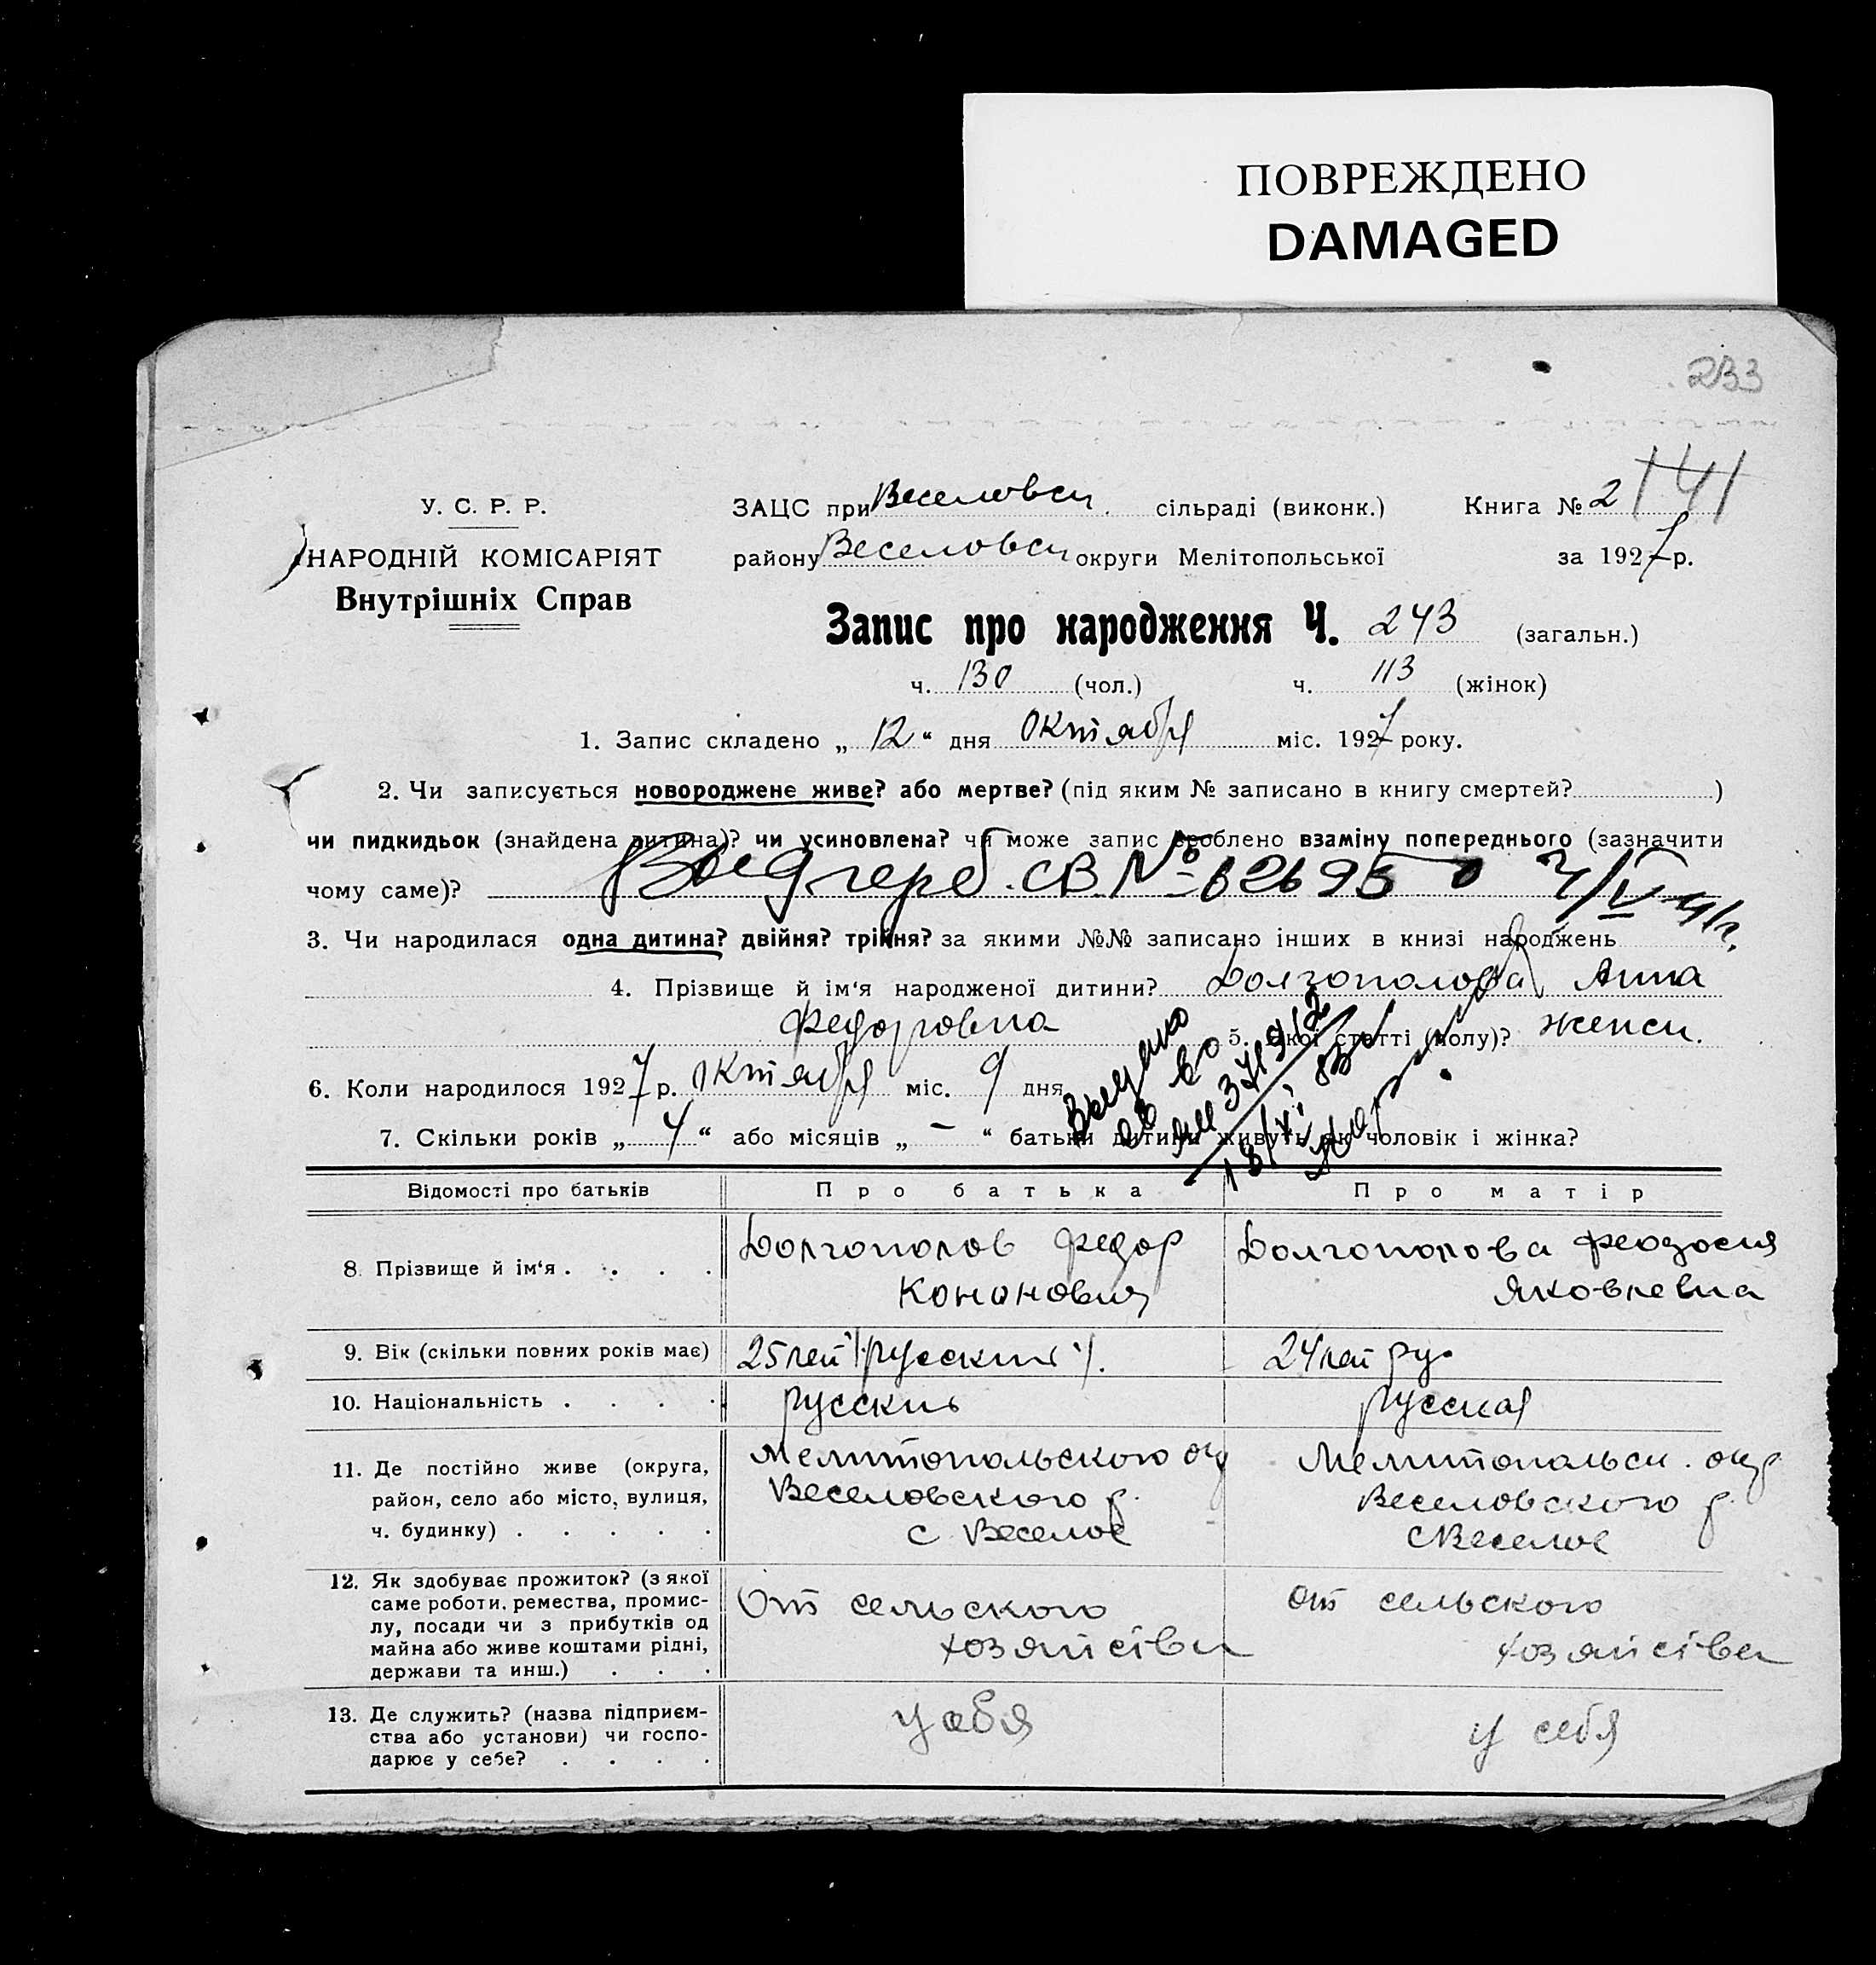 ПОВРЕЖДЕНО
DAMAGED
233
У. С. Р. Р.
НАРОДНІЙ КОМІСАРІЯТ
Внутрішніх Справ
ЗАЦС при Веселовск сільраді (виконк.) Книга № 2 141
району Веселовск округи Мелітопольської за 1927 р.
Запис про народження Ч. 243 (загальн.)
ч. 130 (чол.) ч. 113 (жінок)
1. Запис складено „ 12 “ дня Октября міс. 1927 року.
2. Чи записується новороджене живе? або мертве? (під яким № записано в книгу смертей? )
чи пидкидьок (знайдена дитина)? чи усиновлена? чи може запис зроблено взаміну попереднього (зазначити
чому саме)? Выд герб. св. №
3. Чи народилася одна дитина? двійня? трійня? за якими №№ записано інших в книзі народжень
4. Прізвище й ім'я народженої дитини? Долгополова Анна
Федоровна 5. Якої статті (полу)? женск.
6. Коли народилося 1927 р. Октября міс. 9 дня
7. Скільки років „ 4 “ або місяців „ – “ батьки дитини живуть як чоловік і жінка?
Відомості про батьків Про батька Про матір
8. Прізвище й ім'я . . . . Долгополов Федор Кононович Долгополова Феодосия Яковлевна
9. Вік (скільки повних років має) 25 лет русский 24 лет ру
10. Національність . . . . русский русская
11. Де постійно живе (округа, район, село або місто, вулиця, ч. будинку) . . . . . Мелитопольского ок Веселовского р. с Веселое Мелитопольск. окр Веселовского р. с Веселое
12. Як здобуває прожиток? (з якої саме роботи, ремества, промислу, посади чи з прибутків од майна або живе коштами рідні, держави та инш.) . . . От сельского хозяйства от сельского хозяйства
13. Де служить? (назва підприємства або установи) чи господарює у себе? . . . . у себя у себя